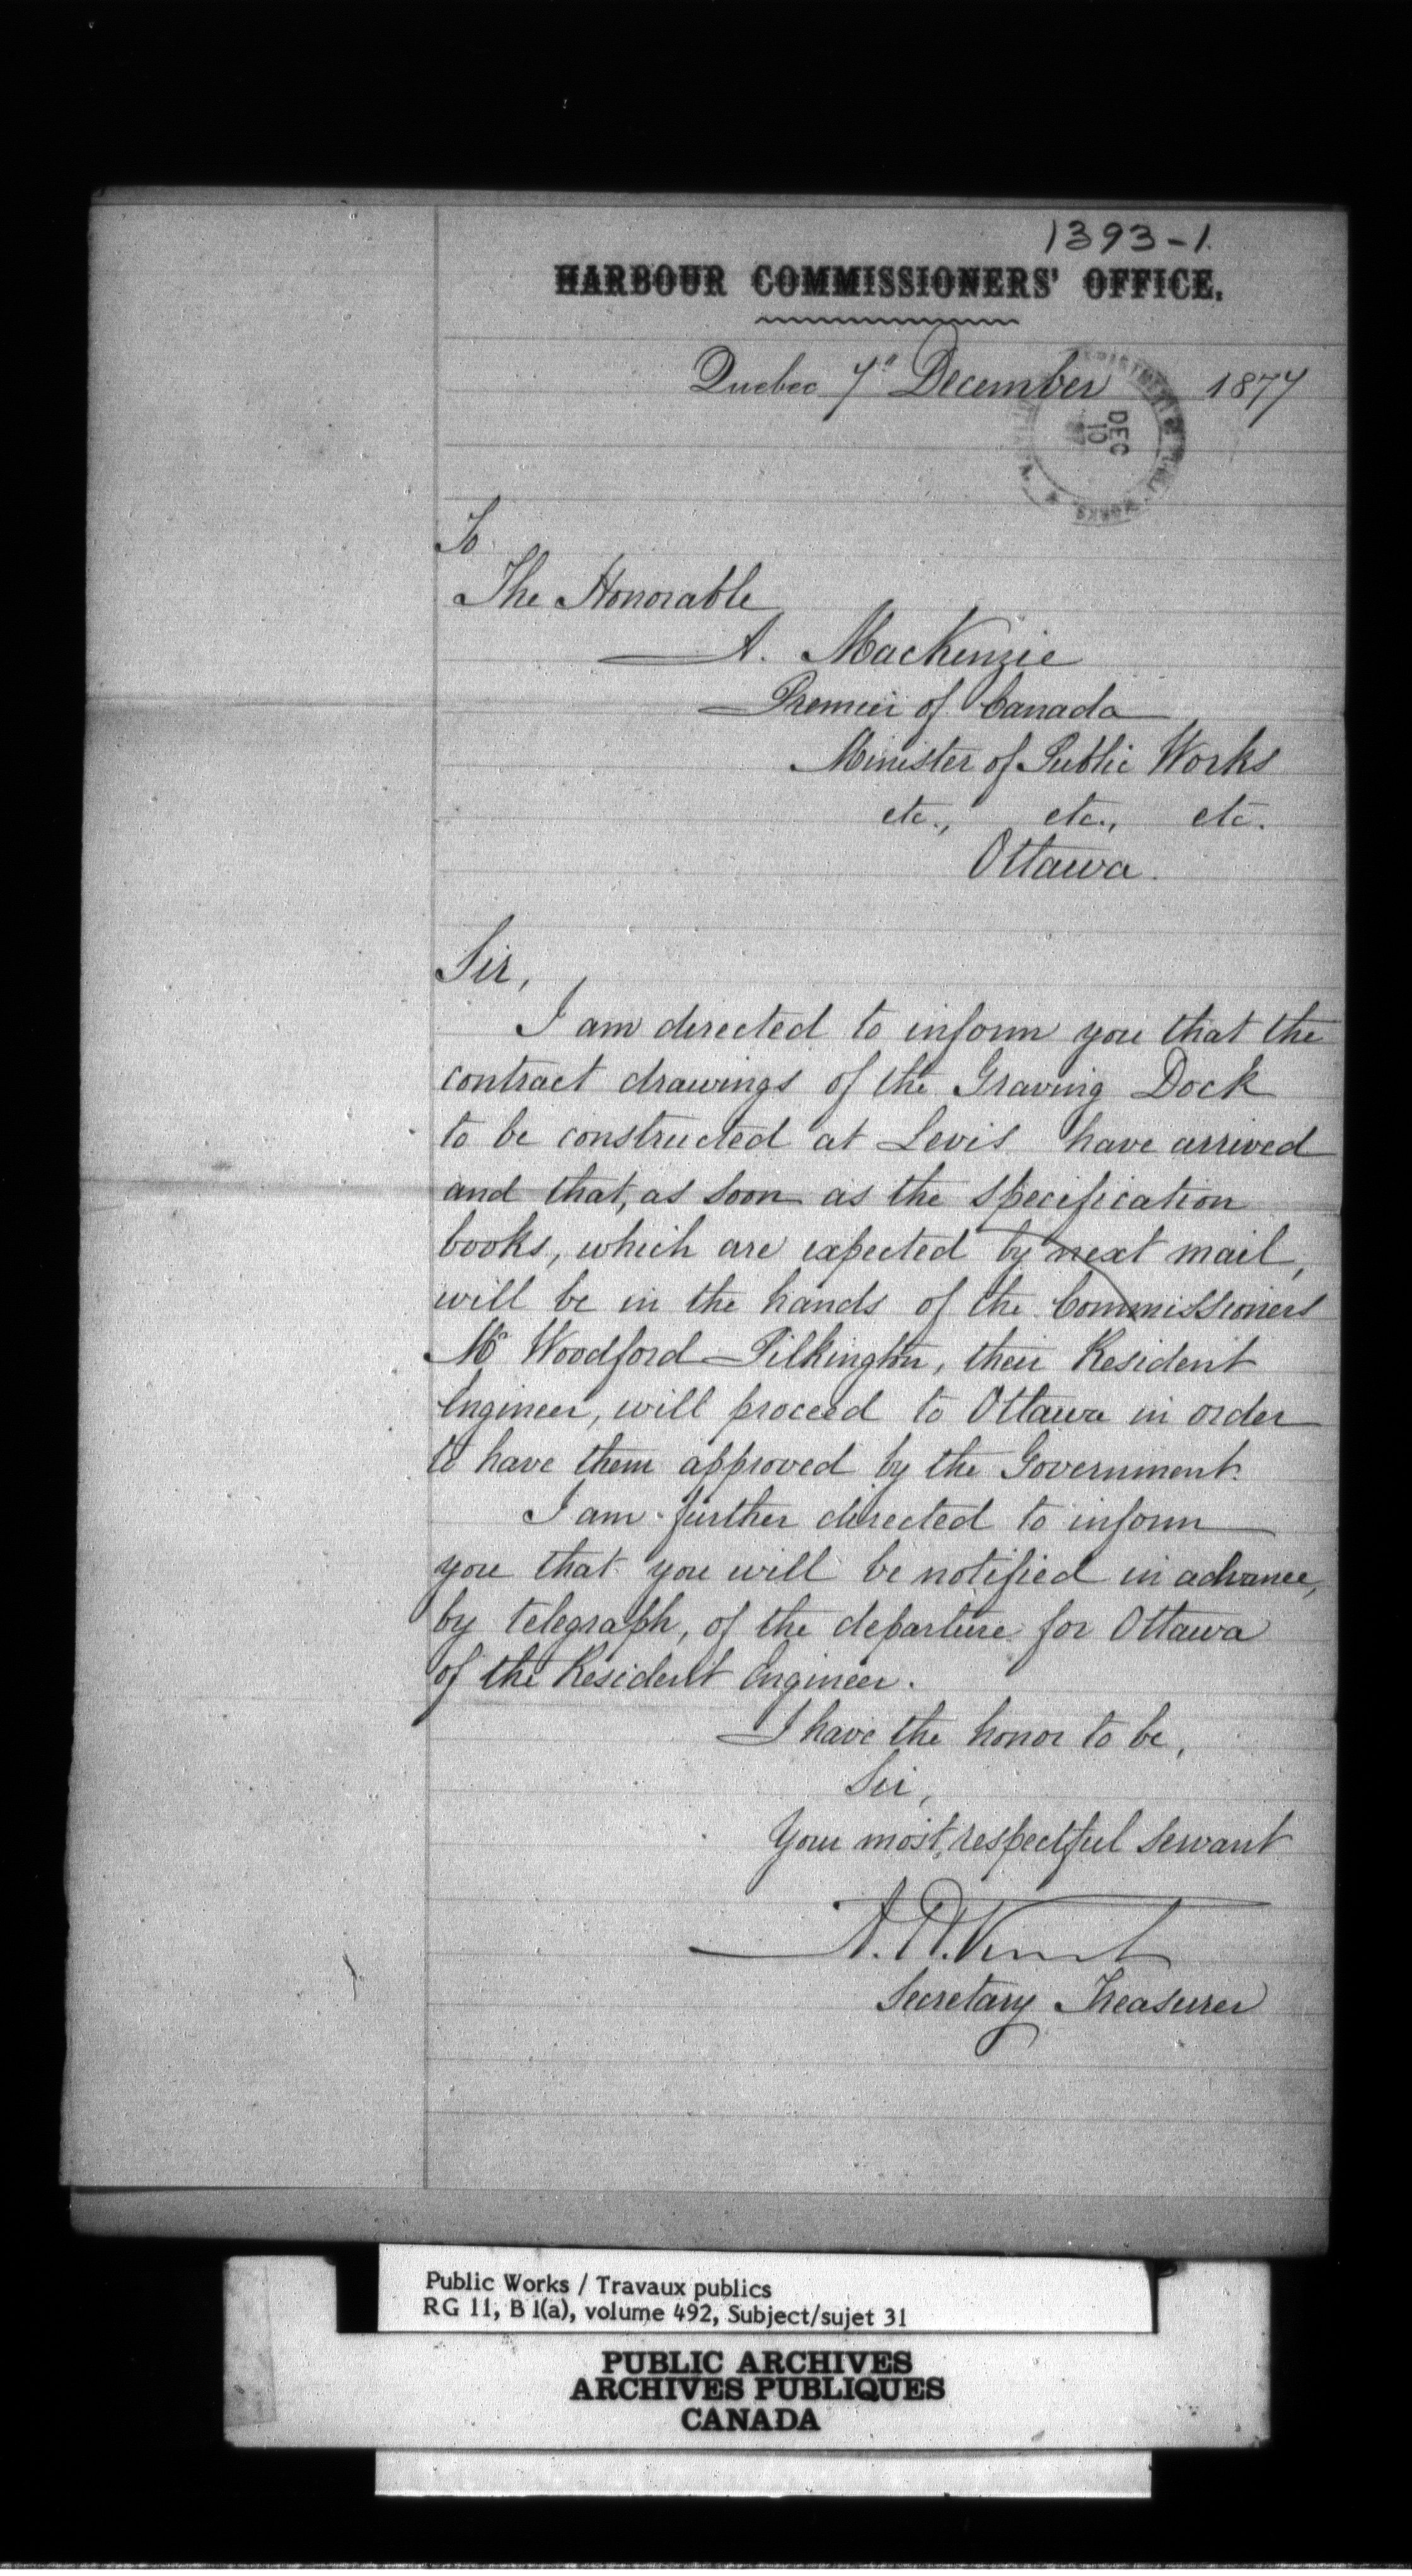 1393-1.
HARBOUR COMMISSIONERS' OFFICE.
Quebec 7" December 1877
DEC
10
WORKS
To
The Honorable
A. MacKenzie
Premier of Canada
Minister of Public Works
etc., etc., etc.
Ottawa.
Sir,
I am directed to inform you that the
contract drawings of the Graving Dock
to be constructed at Levis have arrived
and that, as soon as the specification
books, which are expected by next mail,
will be in the hands of the Commissioners
Mr Woodford Pilkington, their Resident
Engineer, will proceed to Ottawa in order
to have them approved by the Government.
I am further directed to inform
you that you will be notified in advance,
by telegraph, of the departure for Ottawa
of the Resident Engineer.
I have the honor to be,
Sir,
Your most respectful servant
A. H. Verret
Secretary Treasurer
Public Works / Travaux publics
RG 11, B 1(a), volume 492, Subject/sujet 31
PUBLIC ARCHIVES
ARCHIVES PUBLIQUES
CANADA